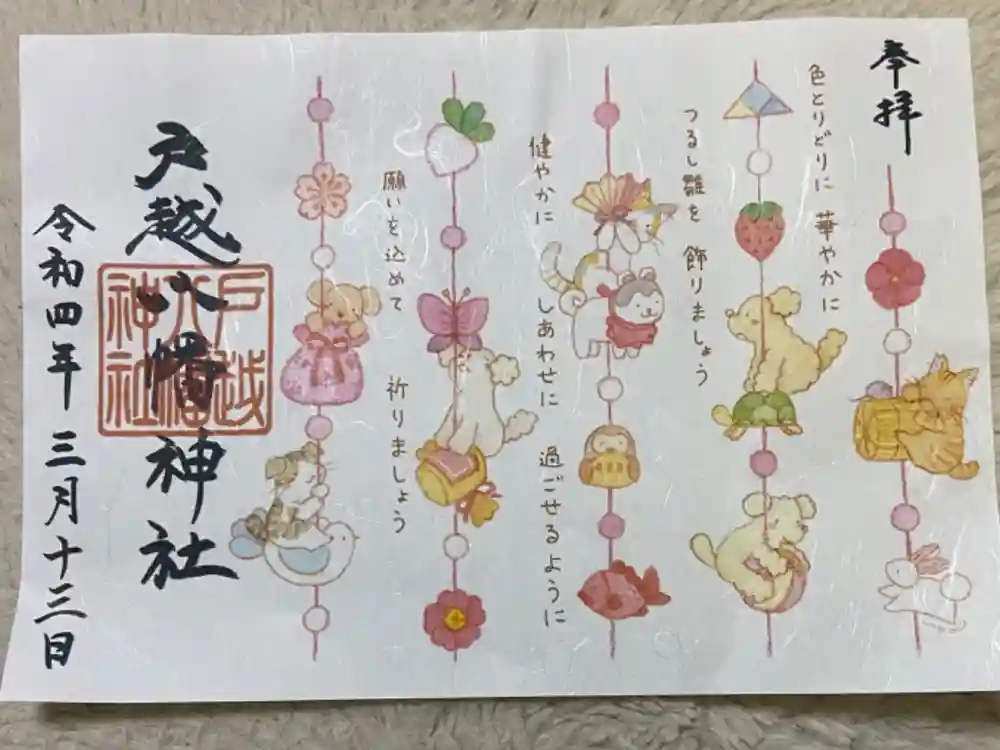 奉拝
色とりどりに 華やかに
つるし雛を 飾りましょう
健やかに しあわせに 過ごせるように
願いを込めて 祈りましょう
戸越八幡神社
戸越八幡神社
令和四年 三月十三日